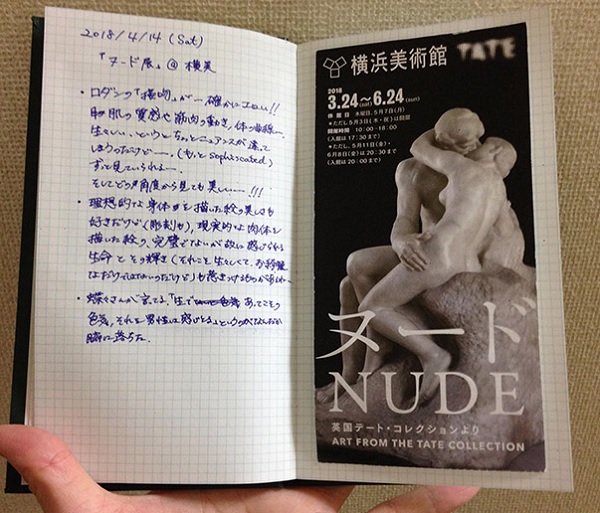 2018/4/14 (Sat)
「ヌード展」@ 横美
・ロダンの「接吻」が… 確かにエロい!!
肌の質感や筋肉の動き、体の曲線…。
生々しい、というとちょっとニュアンスが違って
しまうのだけど…。(もっとSophiscated)
ずっと見ていられるよ…。
そしてどの角度から見ても美しい…!!!
・理想的な身体を描いた絵の美しさも
好きだけど(彫刻も)、現実的な肉体を
描いた絵の、完璧でないが故に感じられる
生命とその輝き(それこそ生々しくて、お綺麗
なだけではないのだけど)も
・蝶々さんが言ってる、「生であってこその
色気、それを男性は感じとる」というのがなんだか
腑に落ちた。
横浜美術館 TATE
2018
3.24(sat)~6.24(sun)
休館日 木曜日、5月7日(月)
*ただし5月3日(木・祝)は開館
開館時間 10:00-18:00
(入館は17:30まで)
*ただし、5月11日(金)・
6月8日(金)は20:30まで
(入館は20:00まで)
ヌード
NUDE
英国テート・コレクションより
ART FROM THE TATE COLLECTION